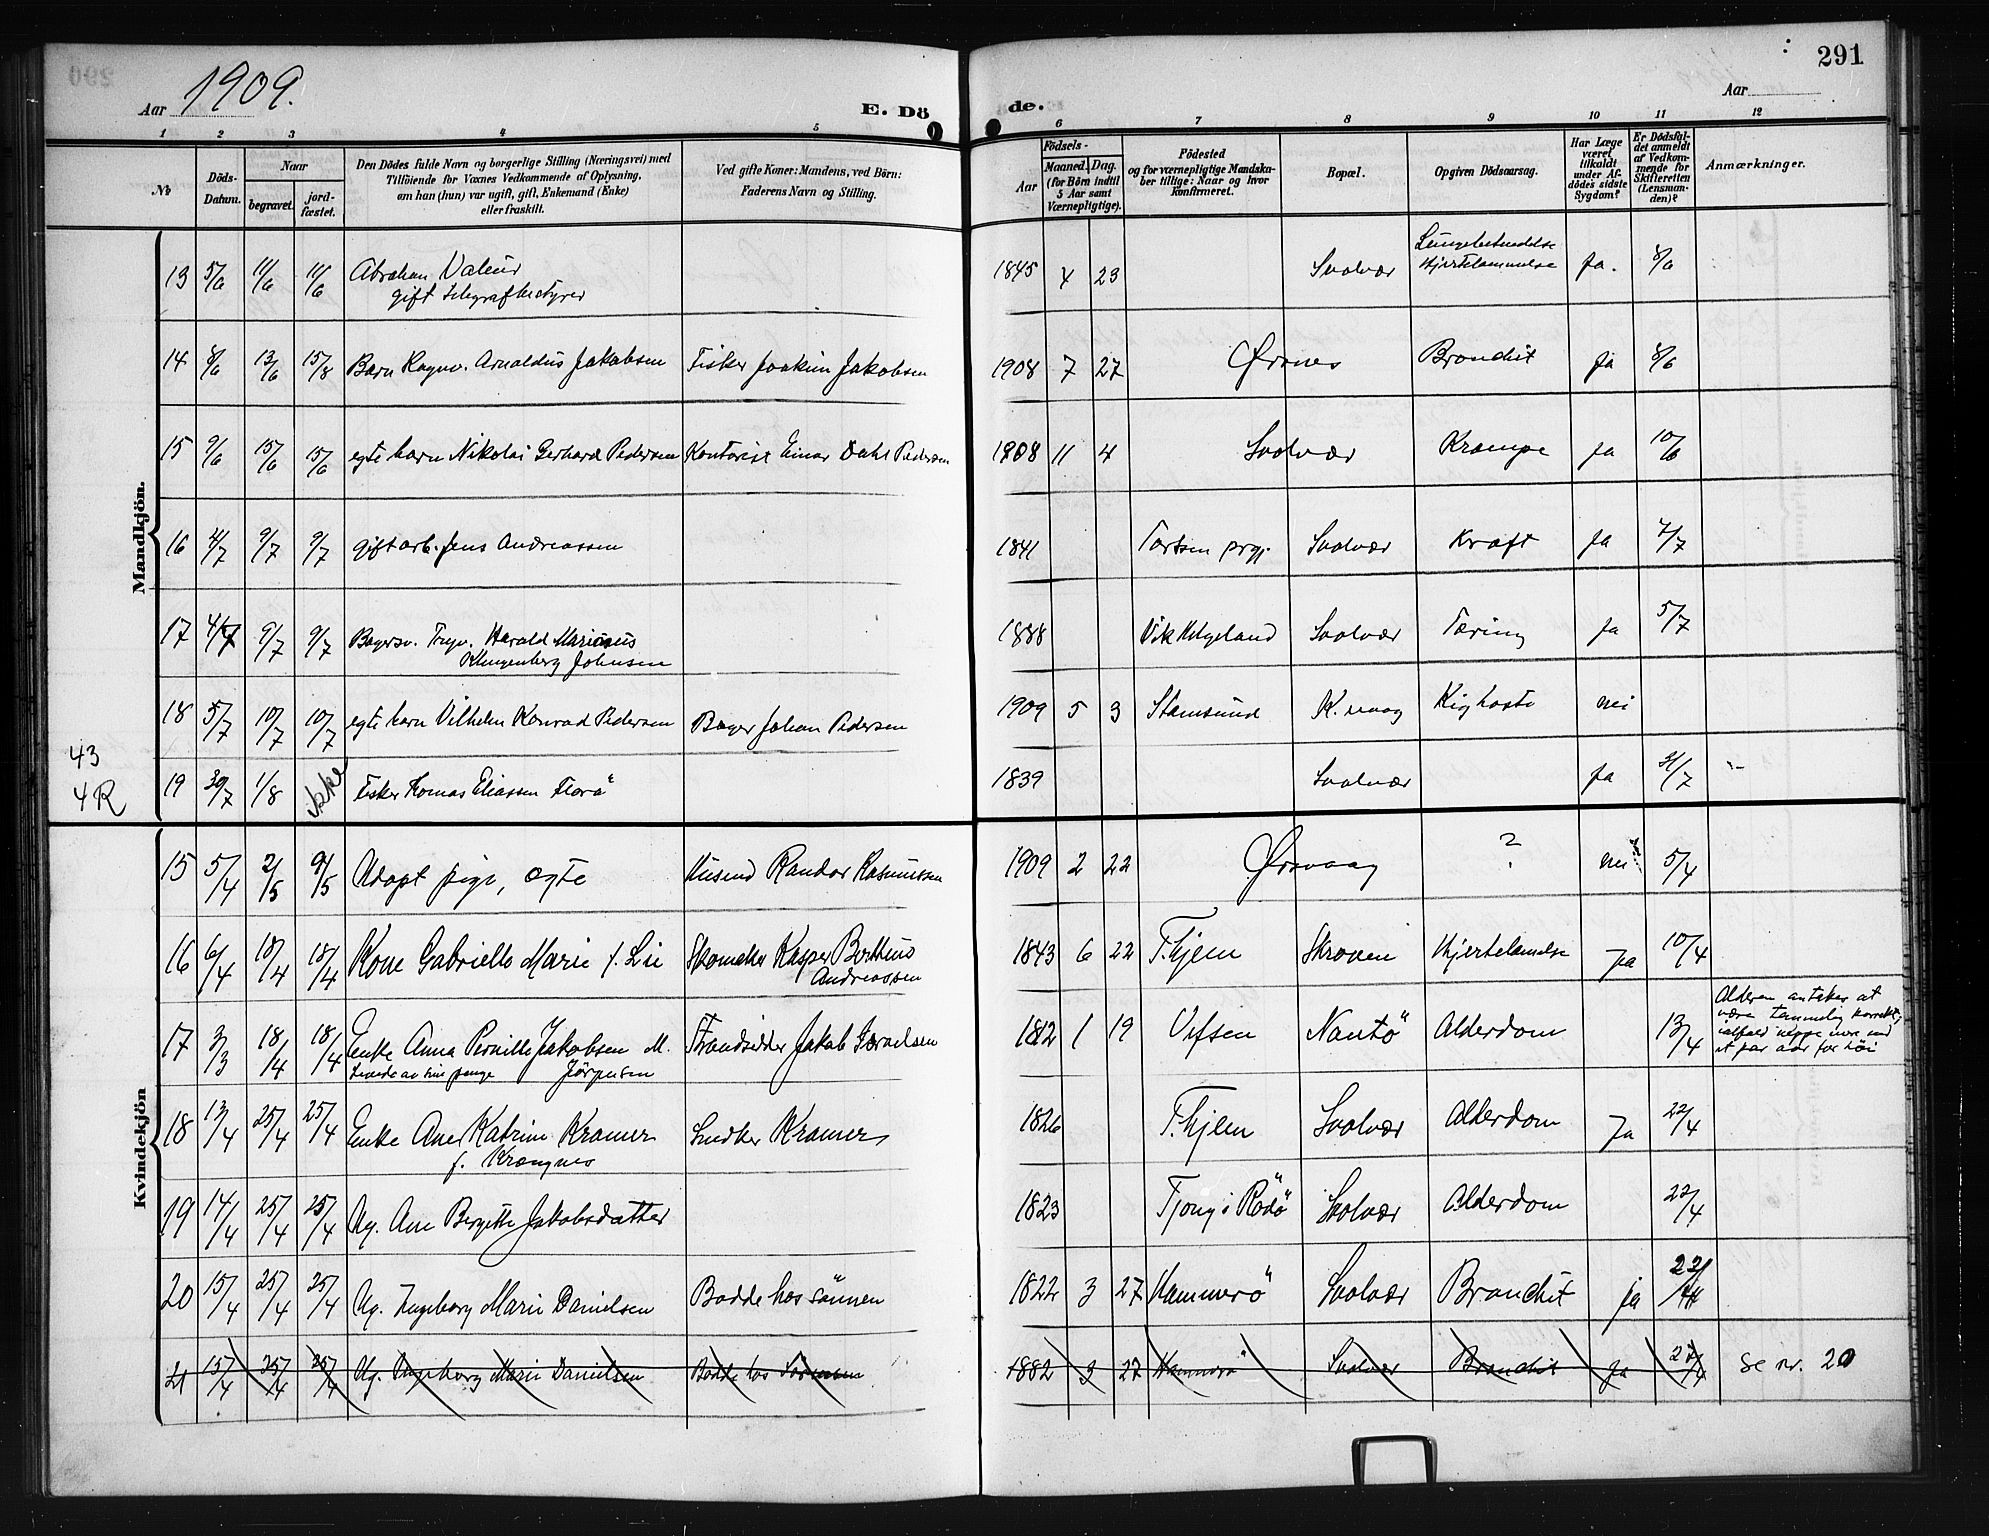 291
Aar 1909.
E. Dö
de.
Aar
1 2 3 4 5 6 7 8 9 10 11 12
No
Döds-Datum.
Naar
begravet.
jord-fæstet.
Den Dödes fulde Navn og borgerlige Stilling (Næringsvei) med
Tilföiende for Voxnes Vedkommende af Oplysning,
om han (hun) var ugift, gift, Enkemand (Enke)
eller fraskilt.
Ved gifte Koner: Mandens, ved Börn:
Faderens Navn og Stilling.
Födsels-
Aar
Maaned. Dag.
(for Börn indtil
5 Aar samt
Værnepligtige).
Födested
og for værnepligtige Mandska-
ber tillige: Naar og hvor
konfirmeret.
Bopæl.
Opgiven Dödsaarsag.
Har Læge
været
tilkaldt
under Af-
dödes sidste
Sygdom?
Er Dödsfal-
det anmeldt
af Vedkom-
mende for
Skifteretten
(Lensman-
den)?
Anmærkninger.
Mandkjön.
13 5/6 11/6 11/6 Abraham Valeur 1845 4 23 Svolvær Lungebetændelse Ja. 8/6
gift telegrafbestyrer Hjertelammelse
14 8/6 13/6 15/8 Barn Ragnv. Arnoldus Jakobsen Fisker Joakim Jakobsen 1908 7 27 Ørsnes Bronchit ja 8/6
15 9/6 15/6 15/6 egte barn Nikolai Gerhard Pedersen Kontorist Einar Dahl Pedersen 1908 11 4 Svolvær Krampe ja 10/6
16 4/7 9/7 9/7 gift arb. Jens Andreassen 1841 Svolvær Kræft Ja 7/7
17 4/7 9/7 9/7 Bagersv. Tryv. Harald Marinus 1888 Vik Helgeland Svolvær Tæring ja 5/7
Klingenberg Johnsen
18 5/7 10/7 10/7 egte barn Vilhelm Konrad Pedersen Bager Johan Pedersen 1909 5 3 Stamsund K.vaag Kighoste nei
43
4 R
19 30/7 1/8 ikke Fisker Tomas Eliassen Florö 1839 Svolvær Ja 31/7
Kvindekjön
15 5/4 2/5 9/5 Udøpt pige, egte Husmd Randor Rasmussen 1909 2 22 Ørsvaag ? nei 5/4
16 6/4 18/4 18/4 Kone Gabrielle Marie f. Lie Skomaker Kasper Bertheus 1843 6 22 T.hjem Skroven Hjertelamelse Ja 10/4
Andreassen
17 3/3 18/4 18/4 Enke Anna Pernille Jakobsen M. Strandsidder Jakob Israelsen 1812 1 19 Vefsen Alderdom 13/4
Levede av sine penge Jörgensen
Alderen antaker at
være temmelig korrekt,
ialfald neppe mere end
et par aar for höi
18 13/4 25/4 25/4 Enke Ane Katrine Kramer Snedker Kramer 1826 T.hjem Svolvær Alderdom Ja 22/4
f. Krangnes
19 14/4 25/4 25/4 Ug. Ane Bergitte Jakobsdatter 1823 Tjong i Rödö Svolvær Alderdom 22/4
20 15/4 25/4 25/4 Ug. Ingeborg Marie Danielsen Bodde hos sönnen 1822 3 27 Hammerö Svolvær Bronchit ja 22/4
21 15/4 25/4 25/4 Ug. Ingeborg Marie Danielsen Bodde hos Sönnen 1882 3 27 Hammerö Svolvær Bronchit ja 22/4 se nr. 20